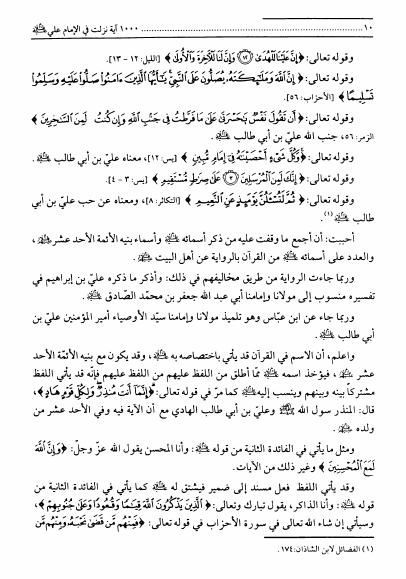 ١٠ ........ ١٠٠٠ آية نزلت في الإمام علي ﷺ
وقوله تعالى: ﴿إِنَّ عَلَيْنَا لَلْهُدَىٰ ۝١٢ وَإِنَّ لَنَا لَلْآخِرَةَ وَالْأُولَىٰ﴾ [الليل: ١٢ - ١٣].
وقوله تعالى: ﴿إِنَّ اللَّهَ وَمَلَائِكَتَهُ يُصَلُّونَ عَلَى النَّبِيِّ يَا أَيُّهَا الَّذِينَ آمَنُوا صَلُّوا عَلَيْهِ وَسَلِّمُوا
تَسْلِيمًا﴾ [الأحزاب: ٥٦].
وقوله تعالى: ﴿أَن تَقُولَ نَفْسٌ يَا حَسْرَتَىٰ عَلَىٰ مَا فَرَّطتُ فِي جَنبِ اللَّهِ وَإِن كُنتُ لَمِنَ السَّاخِرِينَ﴾
الزمر: ٥٦، جنب الله عليّ بن أبي طالب
وقوله تعالى: ﴿وَكُلَّ شَيْءٍ أَحْصَيْنَاهُ فِي إِمَامٍ مُّبِينٍ﴾ [يس: ١٢]، معناه علي بن أبي طالب .
وقوله تعالى: ﴿إِنَّكَ لَمِنَ الْمُرْسَلِينَ ۝٣ عَلَىٰ صِرَاطٍ مُّسْتَقِيمٍ﴾ [يس: ٣ - ٤].
وقوله تعالى: ﴿ثُمَّ لَتُسْأَلُنَّ يَوْمَئِذٍ عَنِ النَّعِيمِ﴾ [التكاثر: ٨]، ومعناه عن حب علي بن أبي
طالب (١).
أحببت: أن أجمع ما وقفت عليه من ذكر أسمائه وأسماء بنيه الأئمة الأحد عشر ،
والعدد على أسمائه من القرآن بالرواية عن أهل البيت .
وربما جاءت الرواية من طريق مخالفيهم في ذلك: وأذكر ما ذكره علي بن إبراهيم في
تفسيره منسوب إلى مولانا وإمامنا أبي عبد الله جعفر بن محمّد الصّادق .
وربما جاء عن ابن عبّاس وهو تلميذ مولانا وإمامنا سيّد الأوصياء أمير المؤمنين عليّ بن
أبي طالب .
واعلم، أن الاسم في القرآن قد يأتي باختصاصه به ، وقد يكون مع بنيه الأئمّة الأحد
عشر ، فيؤخذ اسمه ممّا أطلق من اللفظ عليهم من اللفظ عليهم فإنّه قد يأتي اللفظ
مشتركاً بينه وبينهم وينسب إليه كما مرّ في قوله تعالى: ﴿إِنَّمَا أَنتَ مُنذِرٌ وَلِكُلِّ قَوْمٍ هَادٍ﴾،
قال: المنذر رسول الله وعليّ بن أبي طالب الهادي مع أن الآية فيه وفي الأحد عشر من
ولده .
ومثل ما يأتي في الفائدة الثانية من قوله : وأنا المحسن يقول الله عزّ وجلّ: ﴿وَإِنَّ اللَّهَ
لَمَعَ الْمُحْسِنِينَ﴾ وغير ذلك من الآيات.
وقد يأتي اللفظ فعل مسند إلى ضمير فيشتق له كما يأتي في الفائدة الثانية من
قوله : وأنا الذاكر، يقول تبارك وتعالى: ﴿الَّذِينَ يَذْكُرُونَ اللَّهَ قِيَامًا وَقُعُودًا وَعَلَىٰ جُنُوبِهِمْ﴾
وسيأتي إن شاء الله تعالى في سورة الأحزاب في قوله تعالى: ﴿فَمِنْهُم مَّن قَضَىٰ نَحْبَهُ وَمِنْهُم مَّن
(١) الفضائل لابن الشاذان: ١٧٤.